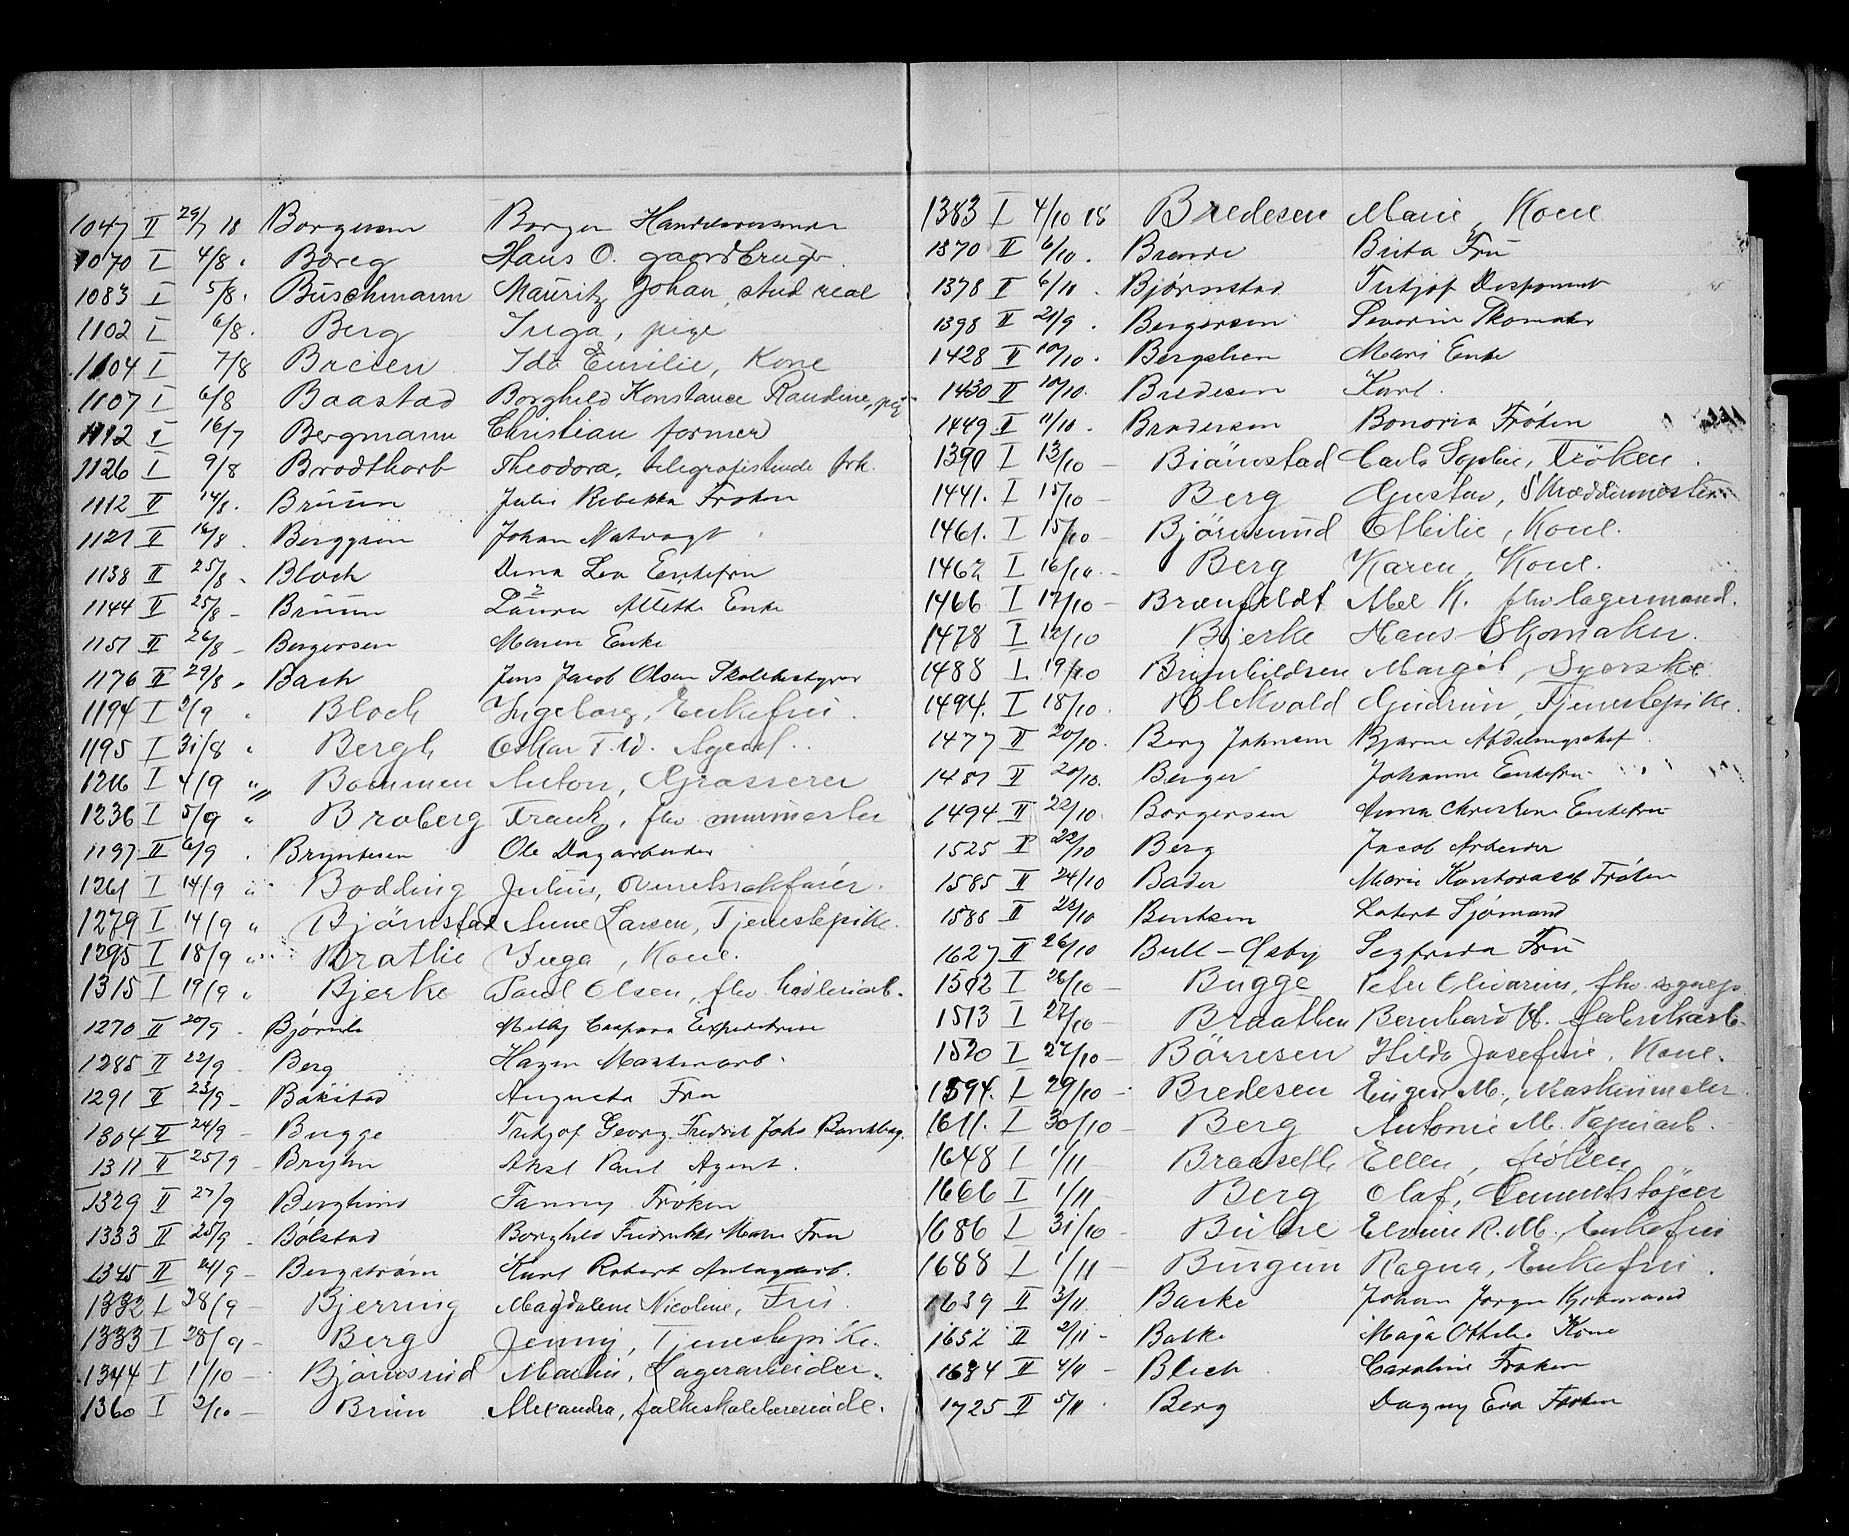 1047 II 29/7 18 Borgersen Borger Handelsmand
1070 I 4/8 " Boreg Hans O. gaardbruger
1083 I 5/8 " Buschmann Mauritz Johan, stud real
1102 I 6/8 . Berg Inga, pige
1104 I 7/8 Breien Ida Emilie, Kone
1107 I 6/8 Baastad Borghild Konstance Randine, pig
1112 I 16/7 Bergmann Christian former
1126 I 9/8 Brodtkorb Theodora, telegrafistinde frk.
1112 II 14/8 . Bruun Julie Rebekka Frøken
1121 II 16/8 . Berggren Johan Natvagt
1138 II 25/8 - Bloch Dina Lea Enkefru
1144 II 25/8 - Bruun Laura Allette Enke
1151 II 26/8 - Bergersen Maren Enke
1176 II 29/8 " Bach Jens Jacob Olsen Skolebestyrer
1194 I 2/9 " Bloch Ingeborg, Enkefru.
1195 I 31/8 " Bergh Oskar T. W. Agent.
1216 I 4/9 " Bommen Anton, Grosserer
1236 I 5/9 " Broberg Frank, fhv murmester
1197 II 6/9 . Bryntesen Ole Dagarbeider
1261 I 14/9 " Bodding Julius,
1279 I 14/9 " Bjørnstad Anne Larsen, Tjenestepike.
1295 I 18/9 " Brattlie Inga, Kone.
1315 I 19/9 " Bjerke Paul Olsen, fhv
1270 II 20/9 . Caspara Expeditrise
1285 II 22/9 . Berg Hagen Maskinarb.
1291 II 23/9 - Bakstad Augusta Fru
1304 II 24/9 - Bugge Fritjof Georg Fredrik Johs Bankbog.
1311 II 25/9 - Bryhn Aksel Paul Agent.
1329 II 27/9 Berglund Fanny Frøken
1333 II 25/9 - Bølstad Borghild Fredrikke Marie Fru
1345 II 24/9 - Bergstrøm Karl Robert Anlægsarb.
1332 I 28/9 - Bjerring Magdalene Nicoline, Fru.
1333 I 28/9 - Berg Jenny, Tjenestepike.
1344 I 1/10 - Bjørnsrud Lagerarbeider.
1360 I 2/10 - Brun Alexandra, folkeskolelærerinde.
1383 I 4/10 18 Bredesen Marie, Kone
1370 II 6/10 . Brande Brita Fru
1378 II 6/10 . Bjørnstad Fritjof Disponent
1398 II 21/9 . Bergersen Severin Skomaker
1428 II 10/10 . Bergslien Mari Enke
1430 II 10/10 . Bredesen Karl.
1449 II 11/10 . Brodersen Bonoria Frøken
1390 I 13/10 - Bjørnstad Carla Sophie, Frøken.
1441. I 15/10 - Berg Gustav, Skræddermester
1461. I 15/10 - Bjørnsund Otilie, Kone.
1462 I 16/10 - Berg Karen, Kone.
1466 I 17/10 - Brænfeldt K. fhv lagermand.
1478 I 12/10 Bjerke Hans Skomaker.
1488 I 19/10 Brynhildsen Margit, Syerske
1494. I 18/10 . Blekvold Gudrun, Tjenestepike.
1477 II 20/10 . Berg Johnsen Bjarne Afdelingschef.
1481 II 20/10 . Berger Johanne Enkefru
1494 II 22/10 Borgersen Anna Christine Enkefru
1525 II 22/10 Berg Jacob Arbeider
1585 II 24/10 Bader Marie Kontorass Frøken
1588 II 25/10 Bentsen Sjømand
1627 II 26/10 Bull-Osby Segfrida Fru
1502 I 26/10 - Bugge Peter Olivarius, fhv sognep.
1513 I 27/10 - Braathen Bernhard H. fabrikarb.
1520 I 27/10 - Børresen Hilda Josefine, Kone.
1594. I 29/10 - Bredesen Eugen M., Maskinmeler
1611. I 30/10 - Berg Antonie M. Papirarb.
1648 I 1/11 - Braaseth Ellen, frøken
1666 I 1/11 - Berg Olaf, Cementstøper
1686 I 31/10 - Elvine R. M., Enkefru
1688 I 1/11 - Burgun Ragna, Enkefru.
1639 II 3/11 . Bakke Johan Jørgen Kjøbmand
1652 II 2/11 - Bakke Maja Ottilie Kone
1684 II 4/11 - Blich Caroline Frøken
1725 II 5/11 . Berg Dagny Eva Frøken